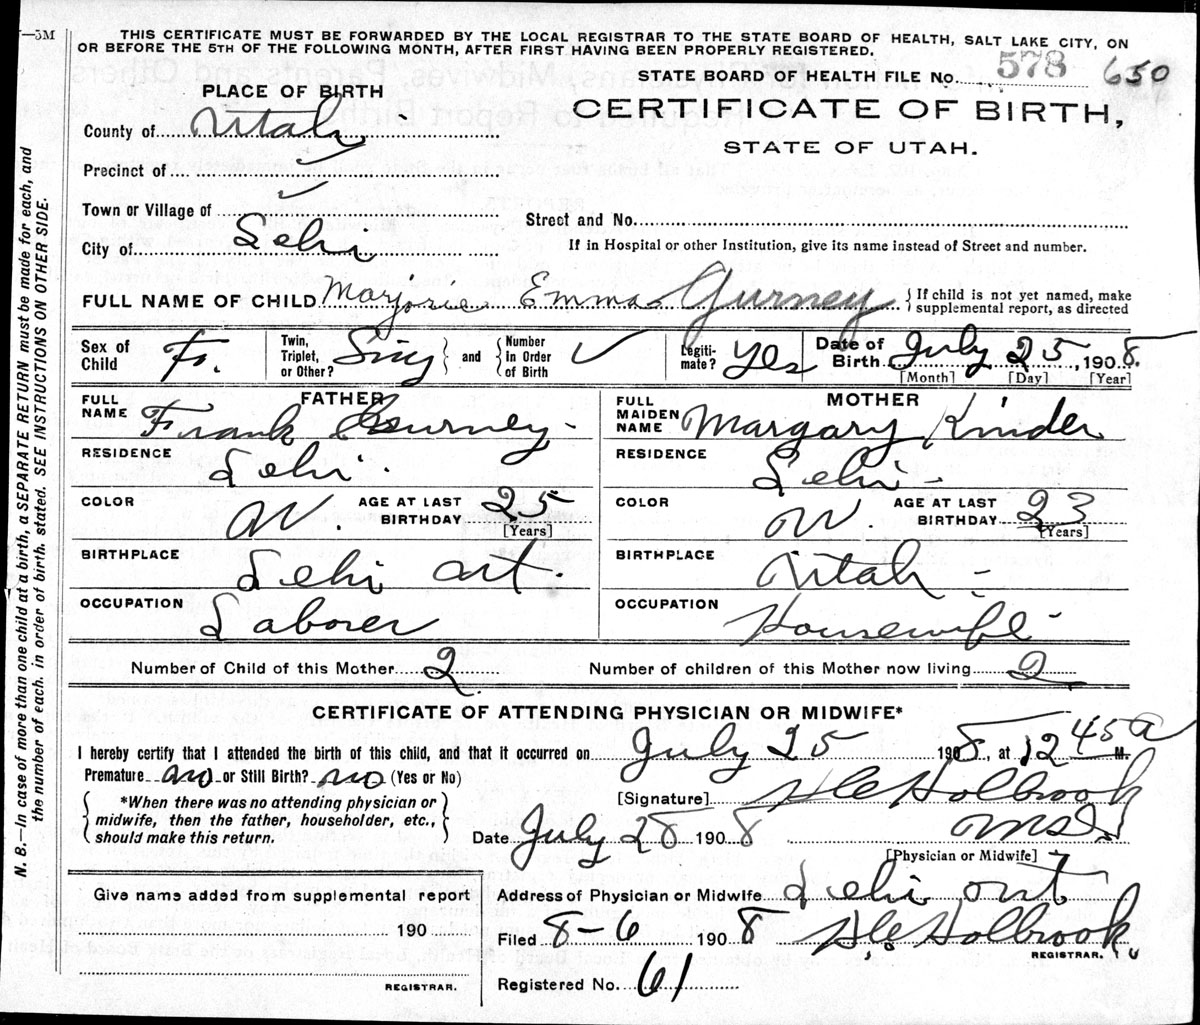 —5M
THIS CERTIFICATE MUST BE FORWARDED BY THE LOCAL REGISTRAR TO THE STATE BOARD OF HEALTH, SALT LAKE CITY, ON
OR BEFORE THE 5TH OF THE FOLLOWING MONTH, AFTER FIRST HAVING BEEN PROPERLY REGISTERED.
STATE BOARD OF HEALTH FILE No. 578 650
PLACE OF BIRTH
CERTIFICATE OF BIRTH,
STATE OF UTAH.
County of Utah
Precinct of
Town or Village of
Street and No.
City of Lehi
If in Hospital or other Institution, give its name instead of Street and number.
FULL NAME OF CHILD Marjorie Emma Gurney { If child is not yet named, make
supplemental report, as directed
Sex of Child F. Twin, Triplet, or Other? Sing and Number in Order of Birth Legiti-mate? Yes Date of Birth July 25, 1908.
[Month] [Day] [Year]
FATHER
FULL NAME Frank Gurney
RESIDENCE Lehi.
COLOR W. AGE AT LAST BIRTHDAY 25 [Years]
BIRTHPLACE Lehi Ut.
OCCUPATION Laborer
MOTHER
FULL MAIDEN NAME Margary Kinder
RESIDENCE Lehi -
COLOR W. AGE AT LAST BIRTHDAY 23 [Years]
BIRTHPLACE Utah -
OCCUPATION Housewife
Number of Child of this Mother 2. Number of children of this Mother now living 2
CERTIFICATE OF ATTENDING PHYSICIAN OR MIDWIFE*
I hereby certify that I attended the birth of this child, and that it occurred on July 25 1908, at 12 45 a M.
Premature no or Still Birth? no (Yes or No)
*When there was no attending physician or
midwife, then the father, householder, etc.,
should make this return.
[Signature] Holbrook
Date July 28 1908 M D
[Physician or Midwife]
Give name added from supplemental report
190
REGISTRAR.
Address of Physician or Midwife Lehi Ut
Filed 8-6 1908 Holbrook
REGISTRAR.
Registered No. 61
N. B.—In case of more than one child at a birth, a SEPARATE RETURN must be made for each, and
the number of each, in order of birth, stated. SEE INSTRUCTIONS ON OTHER SIDE.